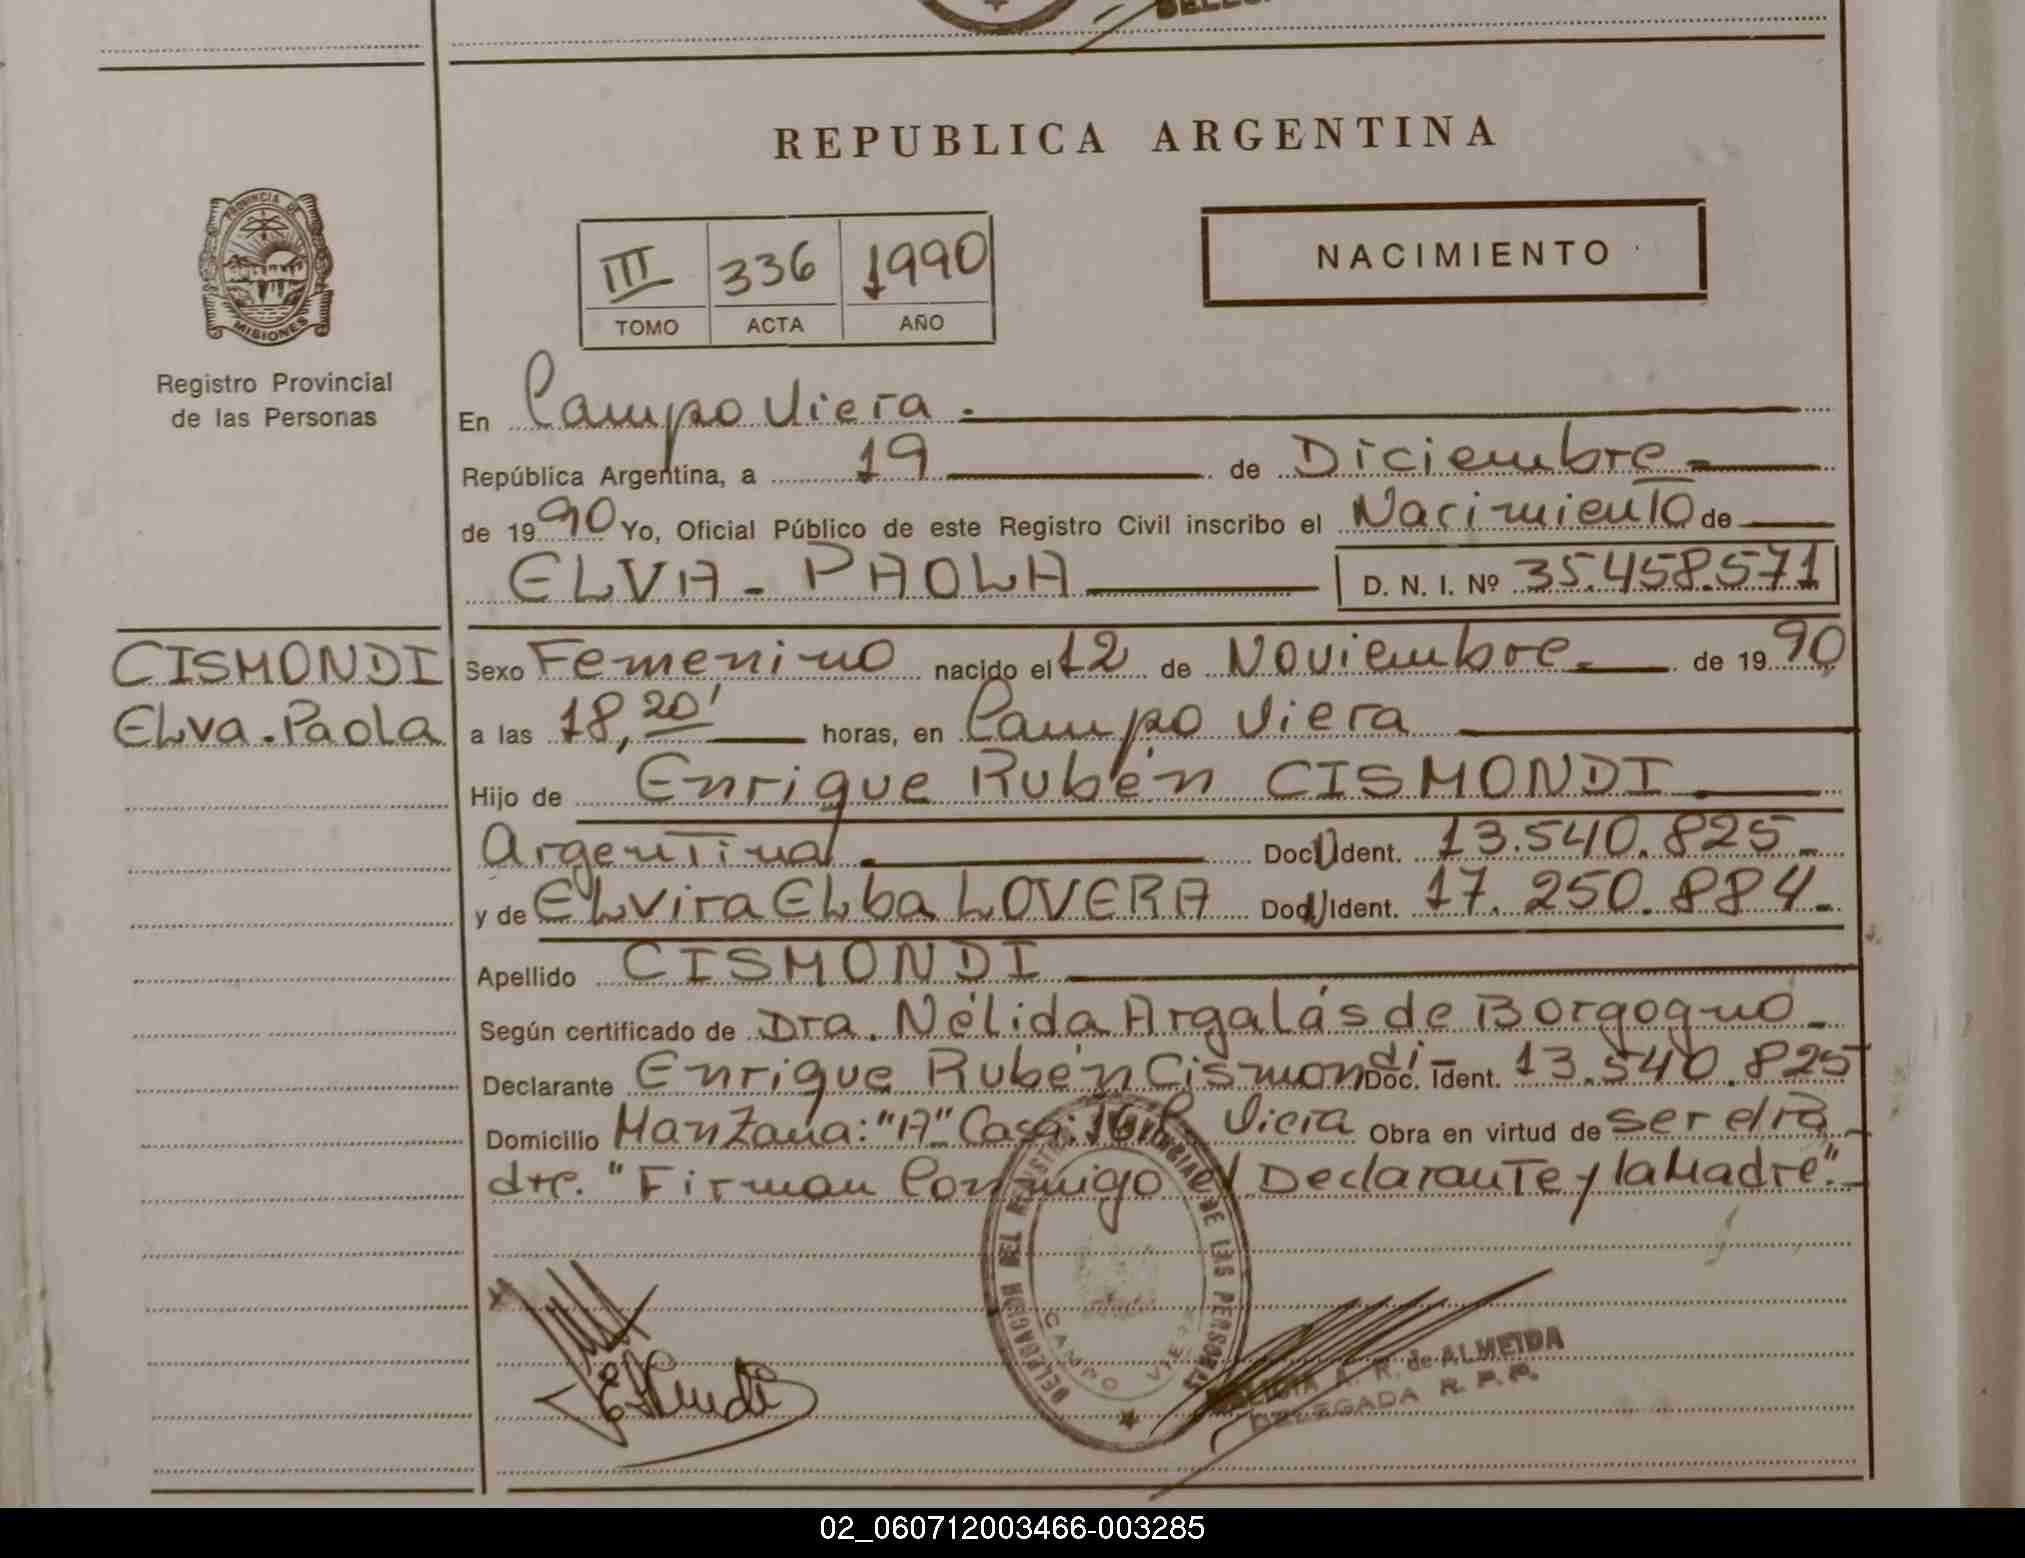 REPUBLICA ARGENTINA
PROVINCIA DE
MISIONES
Registro Provincial
de las Personas
NACIMIENTO
III 336 1990
TOMO ACTA AÑO
En Campo Viera.
República Argentina, a 19 de Diciembre.
de 1990 Yo, Oficial Público de este Registro Civil inscribo el Nacimiento de
ELVA - PAOLA D. N. I. Nº 35.458.571
CISMONDI
Elva. Paola
Sexo Femenino nacido el 12 de Noviembre. de 1990
a las 18,20' horas, en Campo Viera
Hijo de Enrique Rubén CISMONDI
Argentina Doc U Ident. 13.540.825.
y de Elvira Elba LOVERA Doc U Ident. 17.250.884.
Apellido CISMONDI
Según certificado de Dra. Nélida Argalás de Borgogno.
Declarante Enrique Rubén Cismondi- Doc. Ident. 13.540.825
Domicilio Manzana: "A" Casa: Obra en virtud de ser el Pa
dre. "Firman Conmigo el Declarante y la Madre".
DELEGACION DEL REGISTRO PROVINCIAL DE LAS PERSONAS
CAMPO VIERA
A. R. de ALMEIDA
DELEGADA R. P. P.
02_060712003466-003285